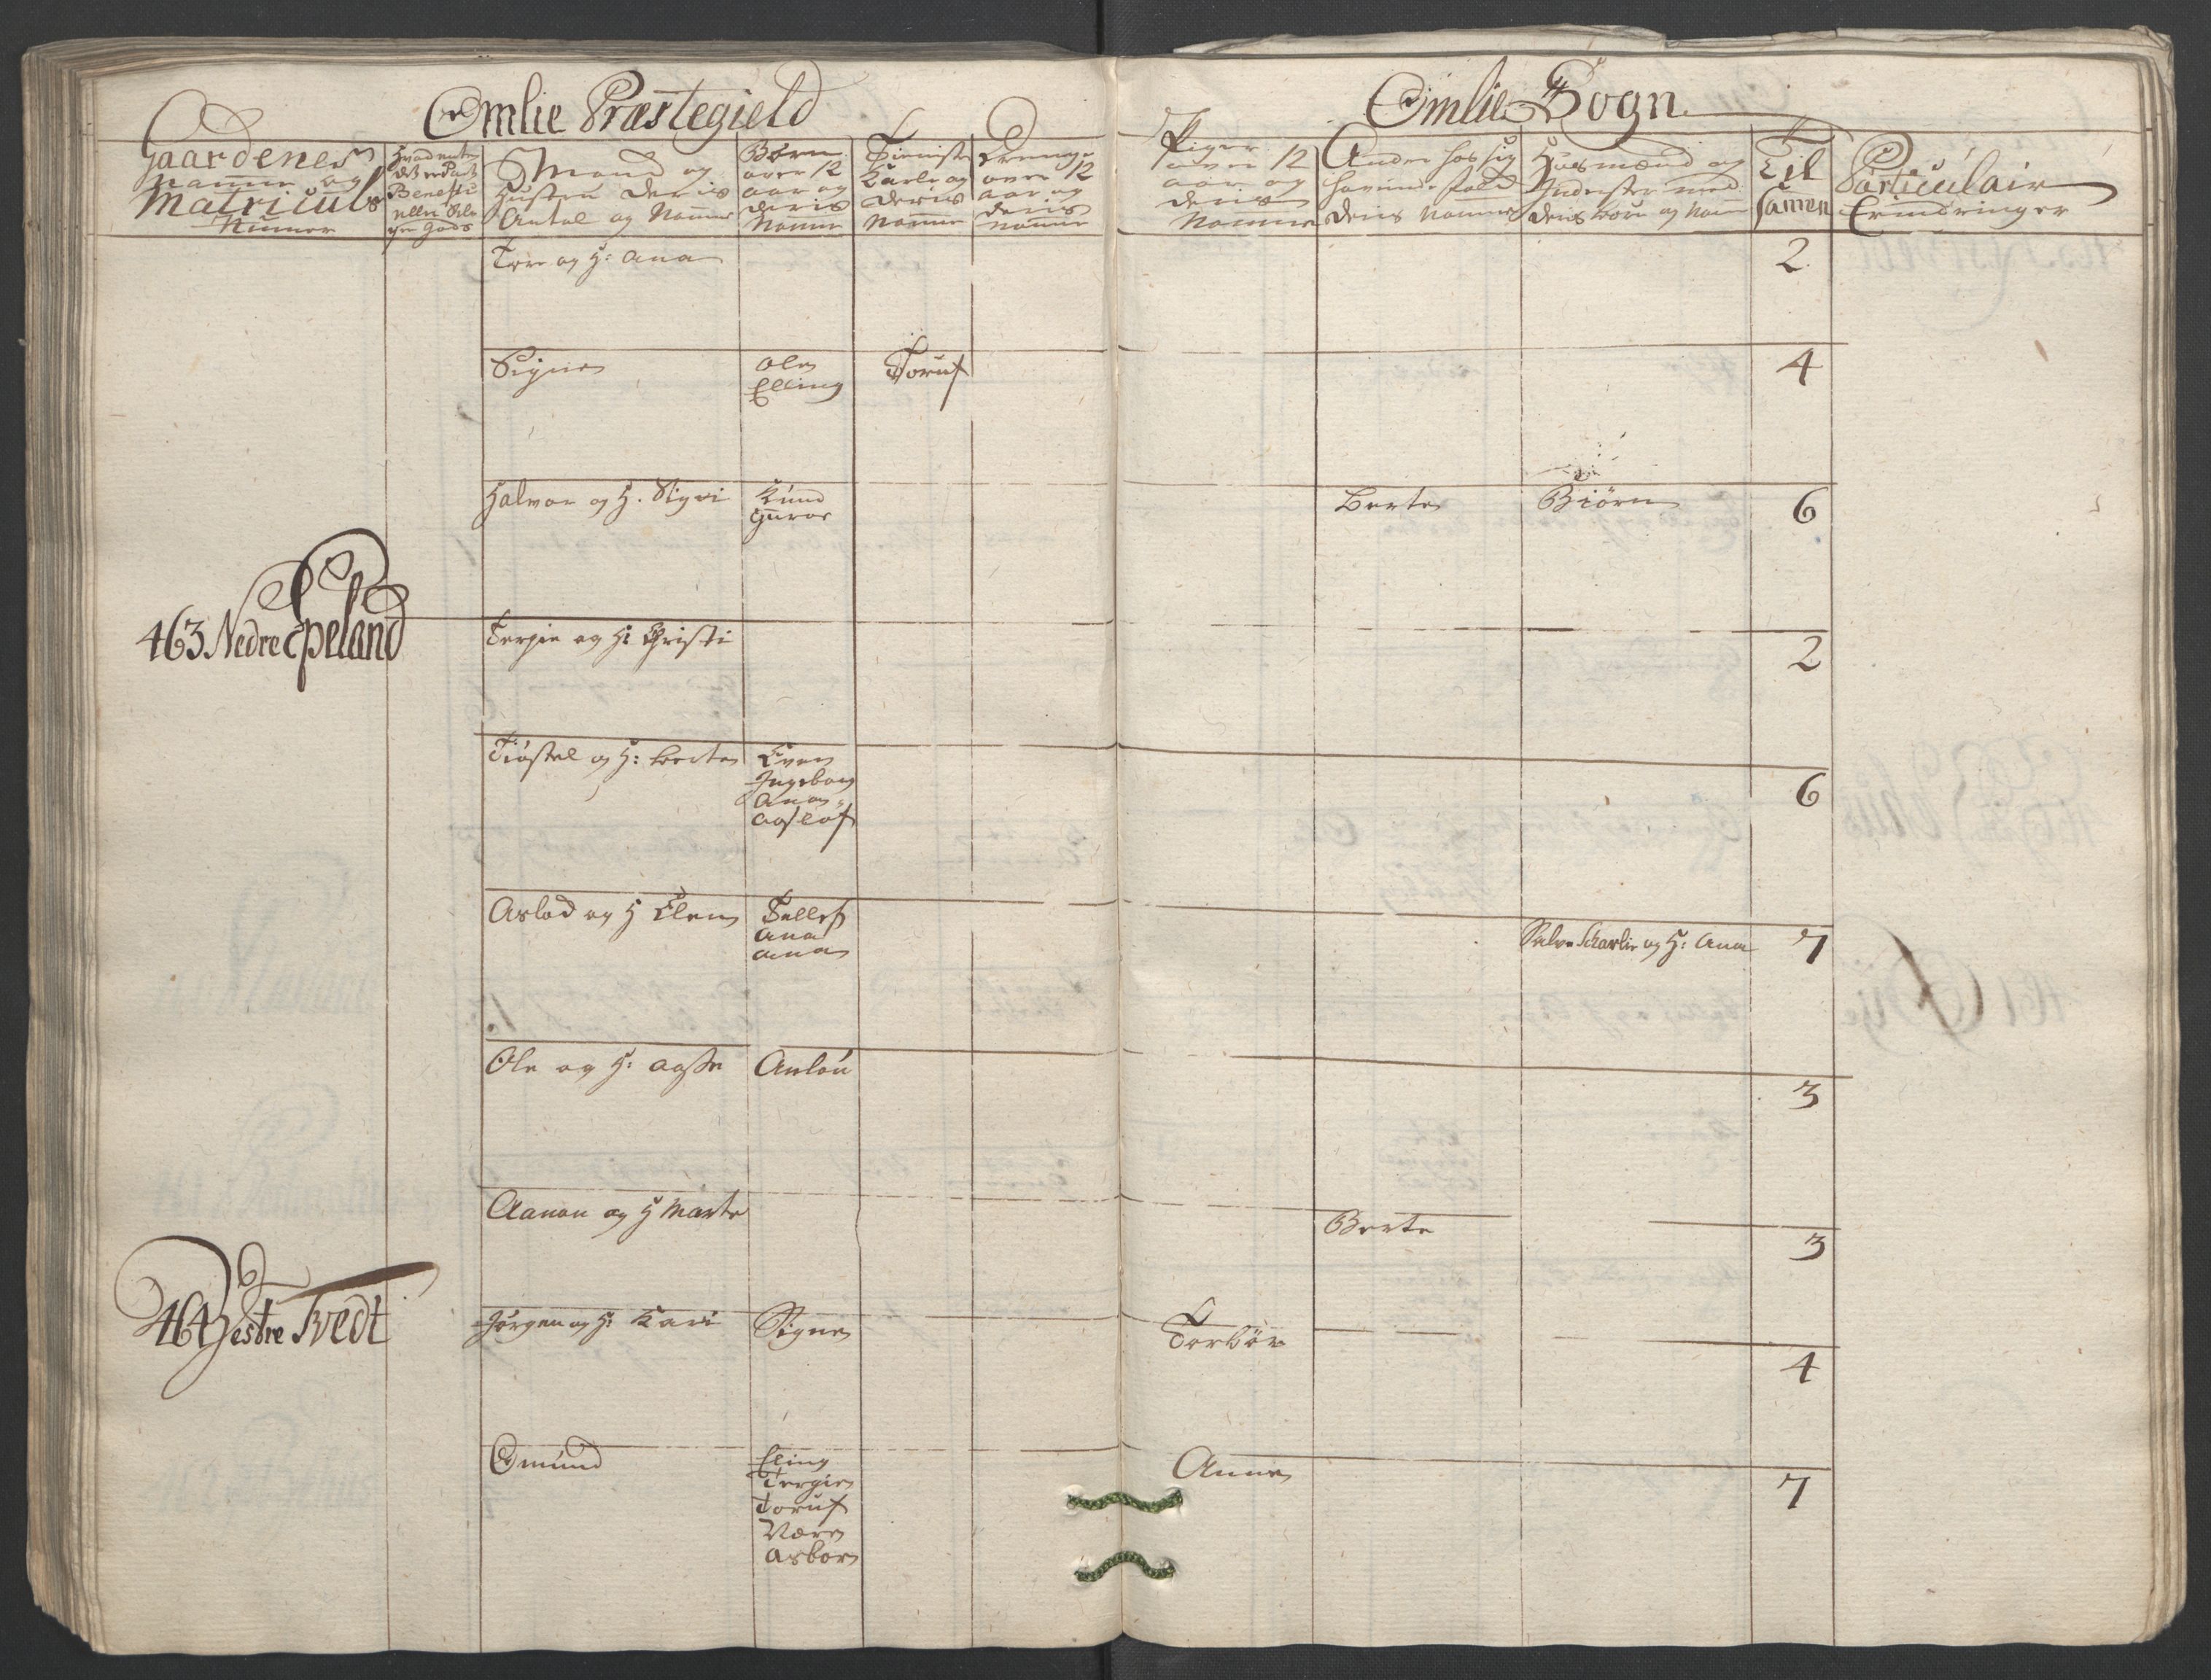 Omlie Præstegield
Omlie Sogn
Gaardenes
Nanne og
Matriculs
Numer
Hvad enten
det er
Benefi
eller
Gods
Mand og
Hustru deris
Antal og Nanne
Børn
over 12
aar og
deris
Nanne
Tieniste
Karle og
deris
Nanne
Drenge
over 12
aar og
deris
Nanne
Piger
over 12
aar og
deris
Nanne
Andre hos sig
havende folck
deris Nanne
Huusmænd og
Inderster med
deris børn og Nanne
Til
samen
Particulair
Erindringer
Tore og H: Ana
2
Signe Ole Toruf
Elling
4
Halvor og H. Sigri Knud Berte Biørn 6
Guroe
463 Nedre Epeland
Tergie og H: Christi
2
Tiøstel og H: Berte Even
Ingebor
Ana
Aaslof
6
Aslod og H Elen Tellef
Ana
Ana
Salve Scharlie og H: Ana 7
Ole og H: Aasse Anlou
3
Aanon og H Marte
Berte 3
464 Vestre Tvedt
Jørgen og H: Kari Signe Torbør
4
Omund Eling Anne
Tergie
Toruf
Være
Asbor
7